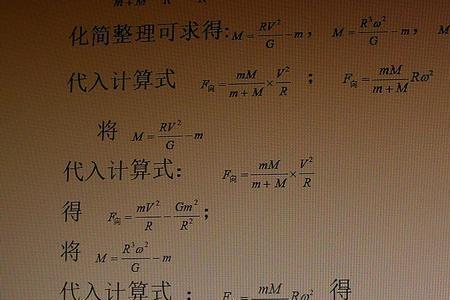 m + M
化简整理可求得: M = RV²/G - m， M = R³ω²/G - m， M
代入计算式 F向 = mM/(m + M) × V²/R ； F向 = mM/(m + M) Rω²
将 M = RV²/G - m
代入计算式： F向 = mM/(m + M) × V²/R
得 F向 = mV²/R - Gm²/R² ；
将 M = R³ω²/G - m
代入计算式 ： F = mM Rω² 得